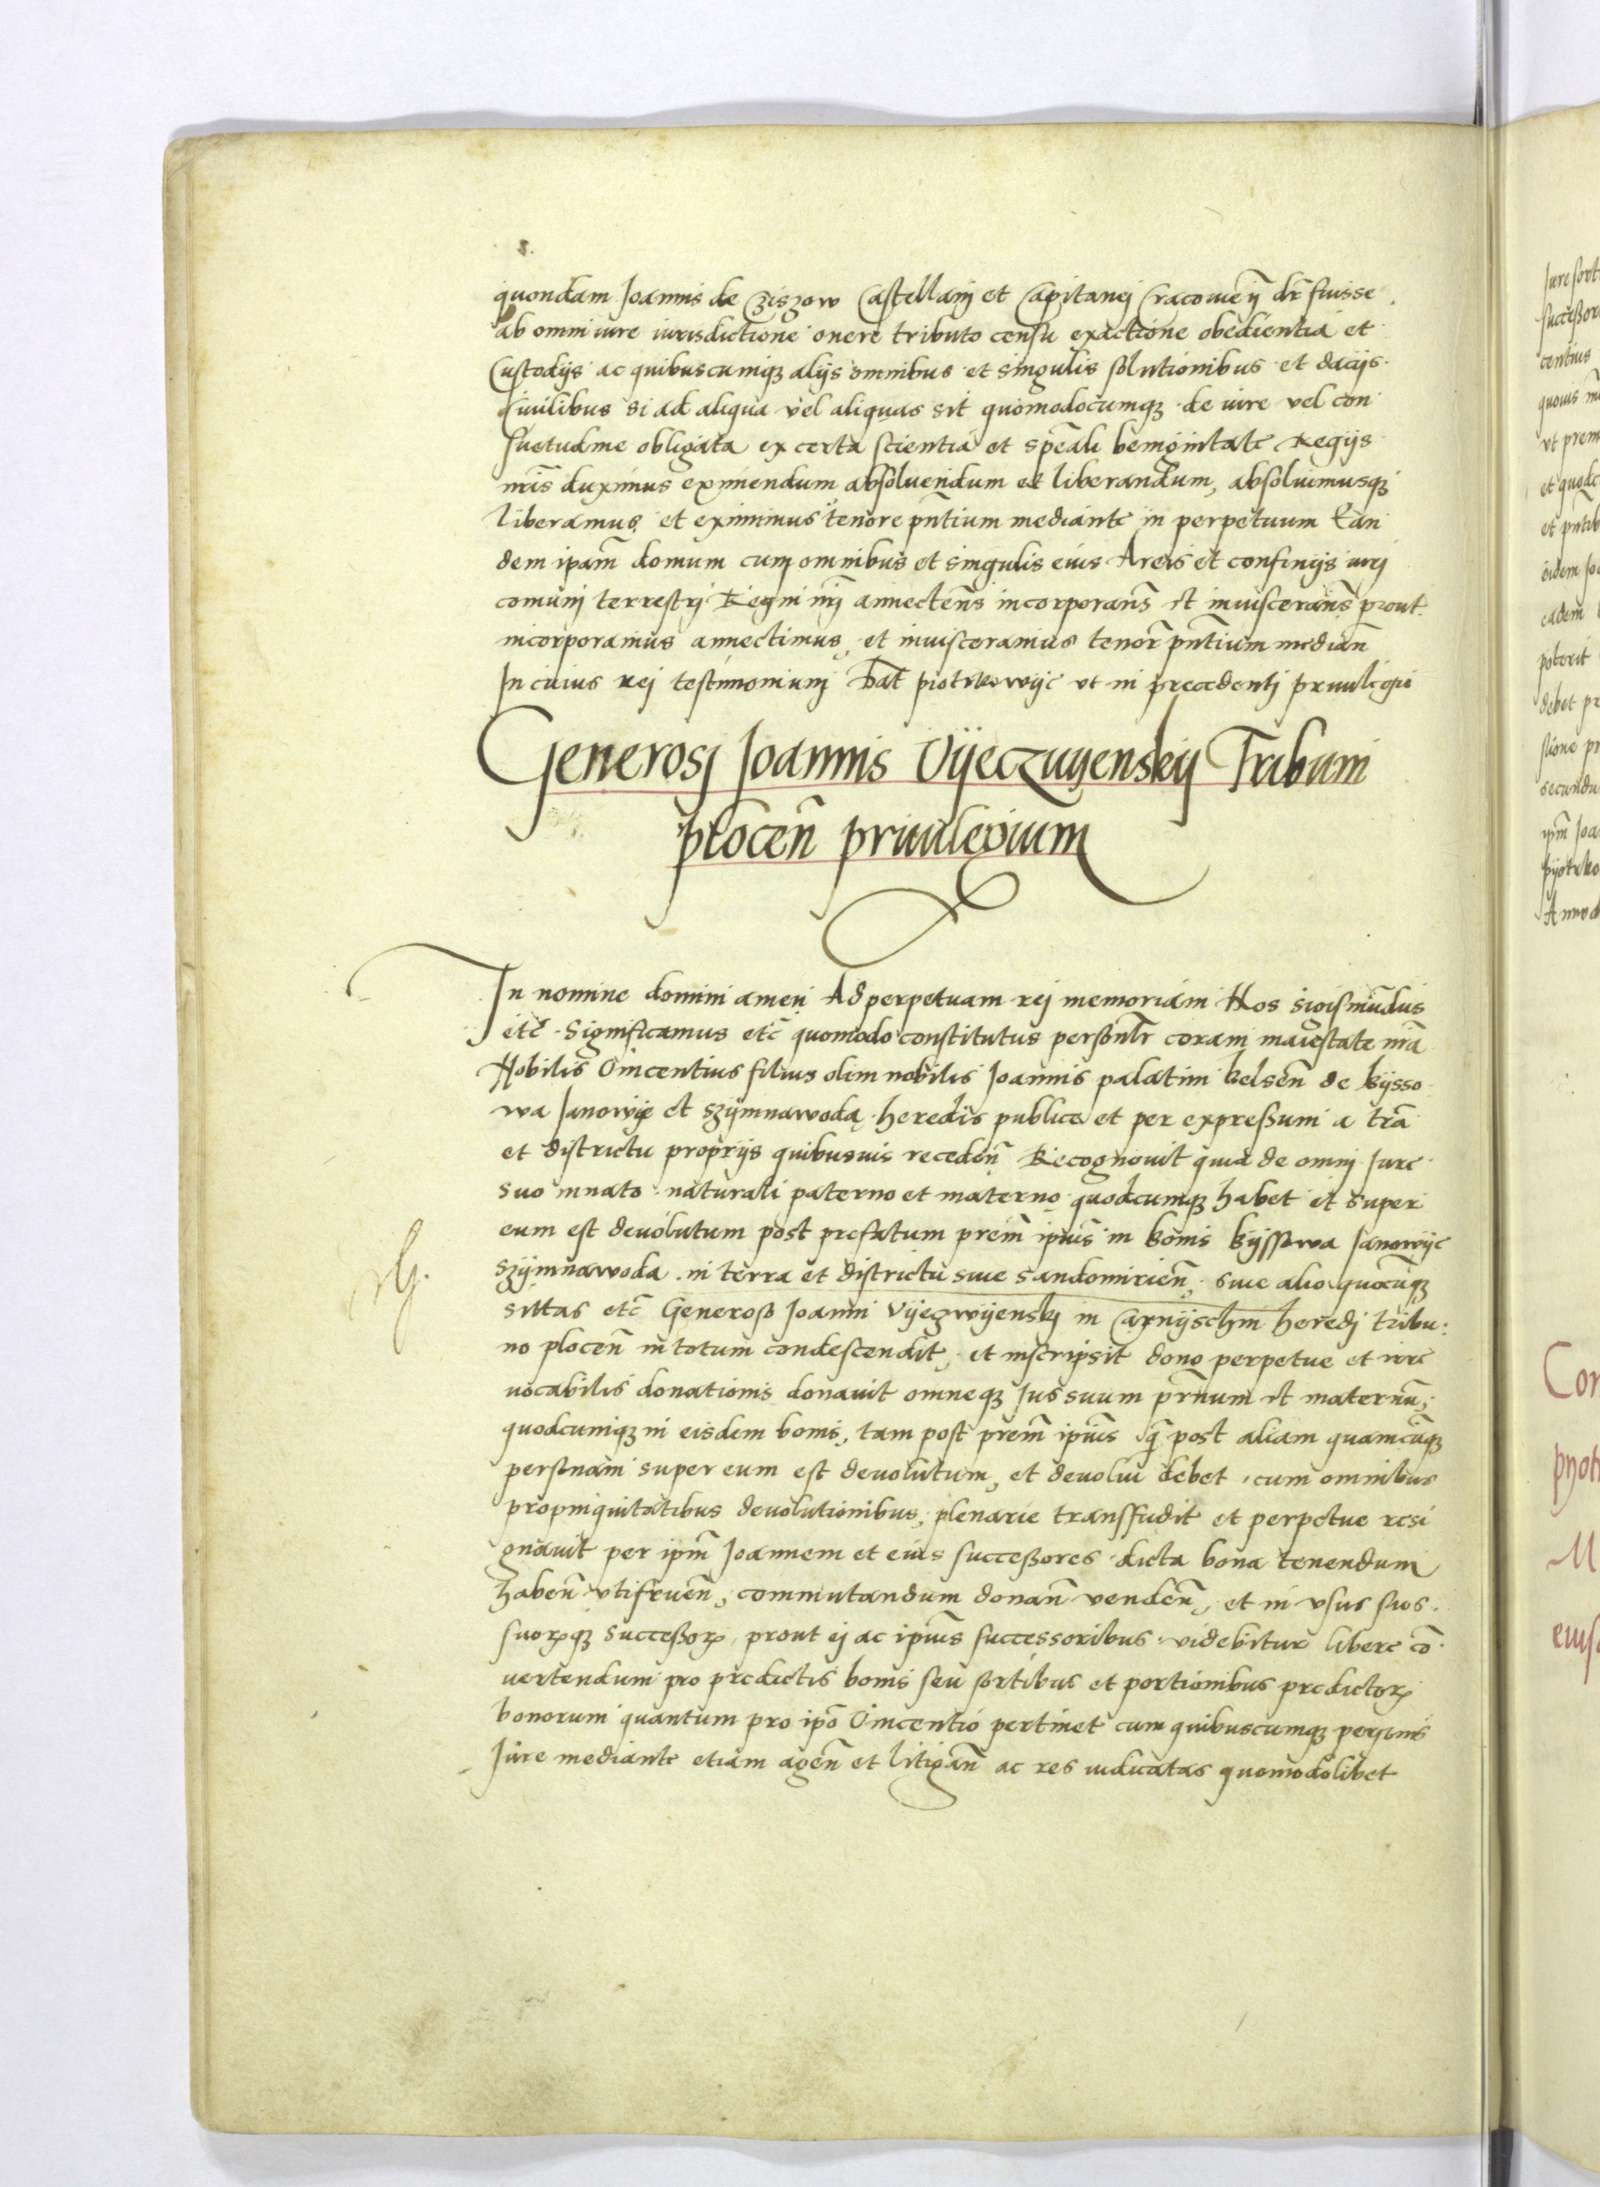 quondam Joannis de Czizow Castellani et Capitanej Cracovieñ dr̃ fuisse
ab omni iure iurisdictione onere tributo censu exactione obedientia et
Custodijs ac quibuscumqꝫ alijs omnibus et singulis solutionibus et dacijs
Ciuilibus si ad aliqua vel aliquas sit quomodocumqꝫ de iure vel con
suetudine obligata ex certa scientia et spẽali benignitate Regijs
nr̃is duximus eximendum absoluendum et liberandum, absoluimusqꝫ
liberamus et eximimus tenore pñtium mediante in perpetuum Ean
dem ipam̃ domum cum omnibus et singulis eius Areis et confinijs iurj
comuni terrestrj Regni nrj̃ annecteñs incorporañs et inuiscerañs prout
incorporamus annectimus, et inuisceramus tenor̃ pñtium median̄
In cuius rej testimonium Dat̃ piotrkowijẽ vt in precedentj priuilegio
Generosj Joannis Vijeczuijenskij Tribuni
ploceñ priuilegium
In nomine domini amen Ad perpetuam rej memoriam Nos Sigismũdus
etc̃ Significamus etc̃ quomodo constitutus persoñlr coram maiestate nr̃a
Nobilis Vincentius filius olim nobilis Joannis palatini belseñ de kijsso
wa Janowije et szijmnawoda heredis publice et per expressum a trã
et districtu proprijs quibusuis recedeñ Recognouit quia de omni Jure
suo innato naturali paterno et materno quodcumqꝫ habet et super
eum est deuolutum post prefatum preim̃ ipius̃ in bonis kijssowa Janowije
szijmnawoda in terra et districtu siue sandomirieñ, siue alio quocũqꝫ
sittas etc̃ Generoso Joanni Vijeczwijenskj in heredj tribu
no ploceñ in totum condescendit, et inscripsit dono perpetue et irre
uocabilis donationis donauit omneqꝫ Jus suum pr̃num et maternũ;
quodcumqꝫ in eisdem bonis, tam post prem̃ ipius̃ q̃ post aliam quamcũqꝫ
personam super eum est deuolutum, et deuolui debet, cum omnibus
propinquitatibus deuolutionibus, plenarie transfudit et perpetue resi
gnauit per ipm̃ Joannem et eius successores dicta bona tenendum
habeñ vtifrueñ, commutandum donañ vendeñ, et in vsus suos
suorꝫqꝫ successorꝫ, prout ej ac ipius̃ successoribus videbitur libere cõ
uertendum pro predictis bonis seu sortibus et portionibus predictorꝫ
bonorum quantum pro ipõ Vincentio pertinet cum quibuscumqꝫ personis
Jure mediante etiam ageñ et litigañ ac res iudicatas quomodolibet